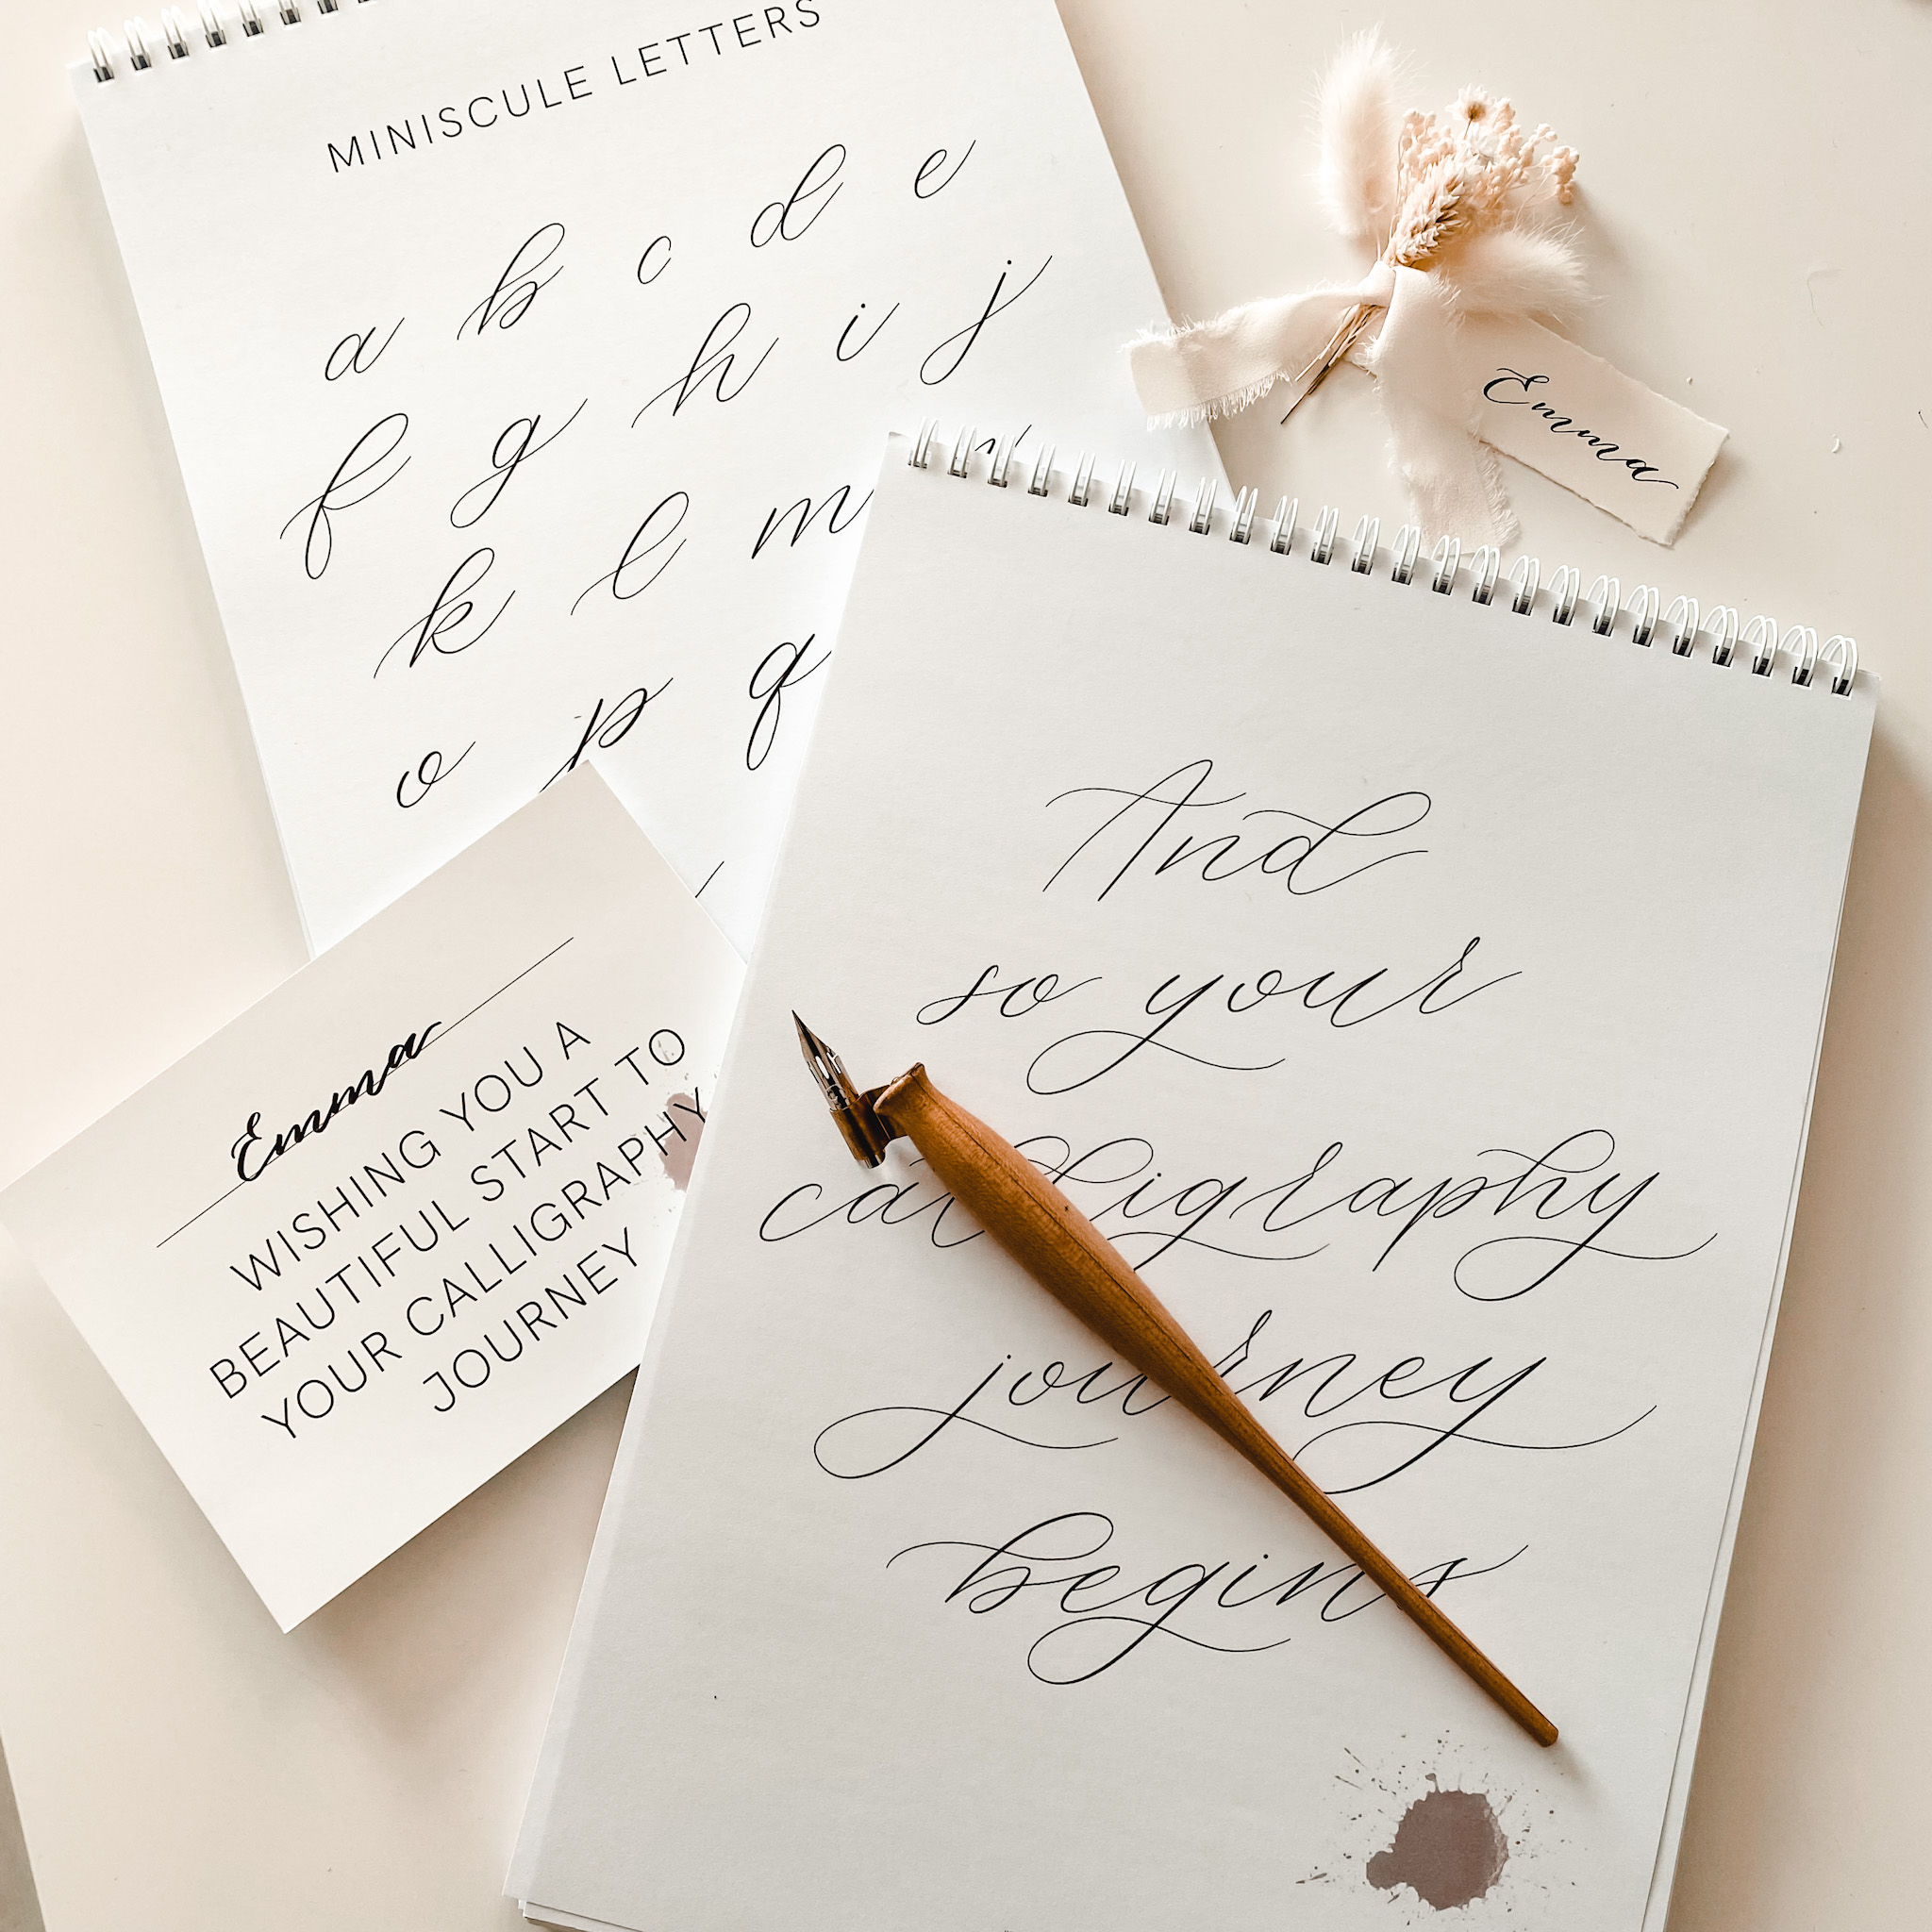 MINISCULE LETTERS
a b c d e
f g h i j
k l m
o p q
Emma
And
so your
calligraphy
journey
begins
Emma
WISHING YOU A
BEAUTIFUL START TO
YOUR CALLIGRAPHY
JOURNEY